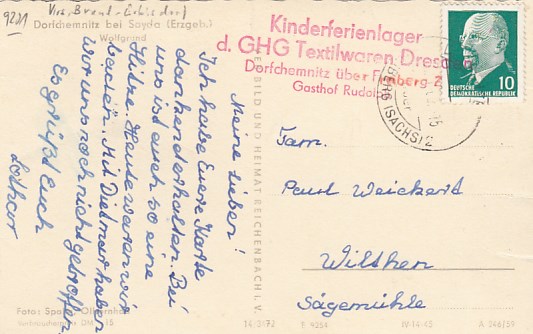 9291
Dorfchemnitz bei Sayda (Erzgeb.)
Wolfsgrund
Kinderferienlager
d. GHG Textilwaren Dresden
Dorfchemnitz über Freiberg 2
Gasthof Rudolf
DEUTSCHE
DEMOKRATISCHE REPUBLIK
10
(SACHS) 2
Meine Lieben!
Ich habe Euere Karte
dankend erhalten. Bei
uns ist auch so eine
Hitze. Heute waren wir
baden. Mit Dietmar haben
wir uns noch nicht getroffen
Es grüßt Euch
Lothar
BILD UND HEIMAT REICHENBACH I. V.
Fam.
Paul Weickert
Wilthen
Sägemühle
Foto:
15
E 9254
IV-14-45
A 348/59